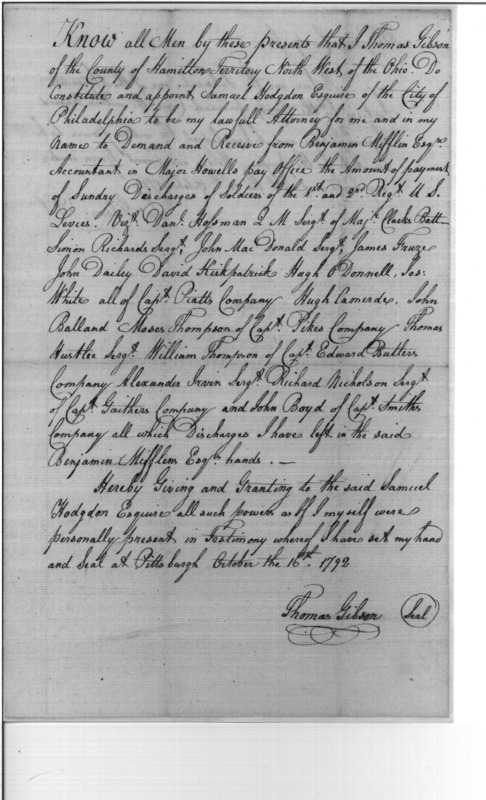 Know all Men by these presents that I Thomas Gibson
of the County of Hamilton Territory North West of the Ohio. Do
Constitute and appoint Samuel Hodgdon Esquire of the City of
Philadelphia to be my lawfull Attorney for me and in my
Name to Demand and Receive from Benjamin Mifflin Esqr.
Accountant in Major Howells pay Office the Amount of payment
of Sundry Discharges of Soldiers of the 1st. and 2nd. Regt. U S.
Levies. Vizt. Danl. Hossman Q M Sergt. of Majr. Clarks Batt
Simon Richards Sergt, John Mac Donald Sergt. James Fruze
John Dailey David Kirkpatrick Hugh O'Donnell, Jos:
White all of Capt. Piatts Company Hugh Camerde, John
Balland Moses Thompson of Capt. Pikes Company Thomas
Hustlee Sergt. William Thompson of Capt. Edward Butlers
Company Alexander Irvin Sergt. Richard Nicholson Sergt
of Capt. Gaithers Company and John Boyd of Capt. Smiths
Company all which Discharges I have left in the said
Benjamin Mifflens Esqrs hands. —
Hereby Giving and Granting to the said Samuel
Hodgdon Esquire all such powers as If I myself were
personally present in Testimony whereof I have set my hand
and Seal at Pittsburgh October the 16th. 1792
Thomas Gibson Seal